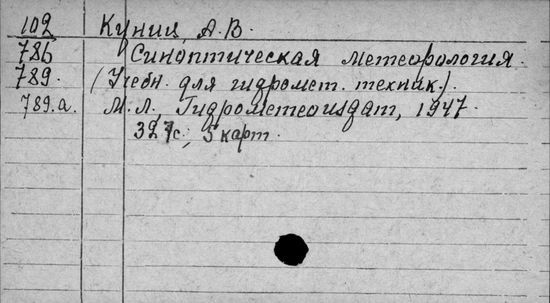 102 Куниц, А.В.
786 Синоптическая метеорология.
789. (Учебн. для гидромет. техник.).
789.а. М.Л., Гидрометеоиздат, 1947.
327с., 5 карт.